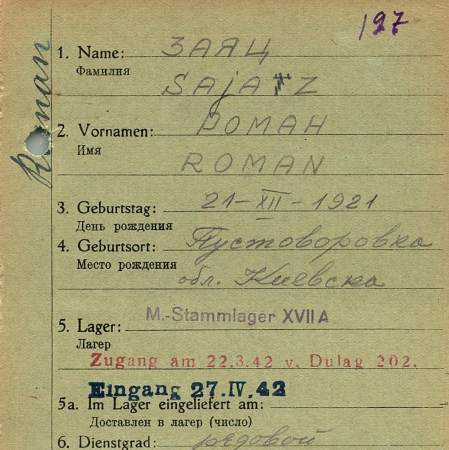 197
Roman
1. Name: ЗАЯЦ
Фамилия
SAJAZ
2. Vornamen: РОМАН
Имя
ROMAN
3. Geburtstag: 21-XII-1921
День рождения
4. Geburtsort: Пустоворовка
Место рождения обл. Киевска
5. Lager: M.-Stammlager XVII A
Лагерь
Zugang am 22.3.42 v. Dulag 202.
Eingang 27.IV.42
5a. Im Lager eingeliefert am:
Доставлен в лагер (число)
6. Dienstgrad: рядовой